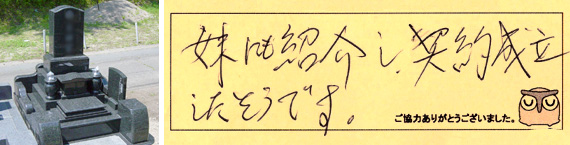 妹にも紹介し、契約成立
したそうです。
ご協力ありがとうございました。